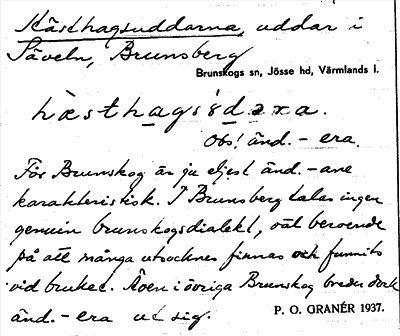 Hästhagsuddarna, uddar i
Säveln, Brunsberg
Brunskogs sn, Jösse hd, Värmlands l.
hæsthagsùdəra.
Obs! änd. - era.
För Brunskog är ju eljest änd. - ane
karakteristisk. I Brunsberg talas ingen
genuin brunskogsdialekt, väl beroende
på att många utsocknes finnas och funnits
vid bruket. Även i övriga Brunskog breder dock
änd. - era ut sig.
P. O. GRANÉR 1937.